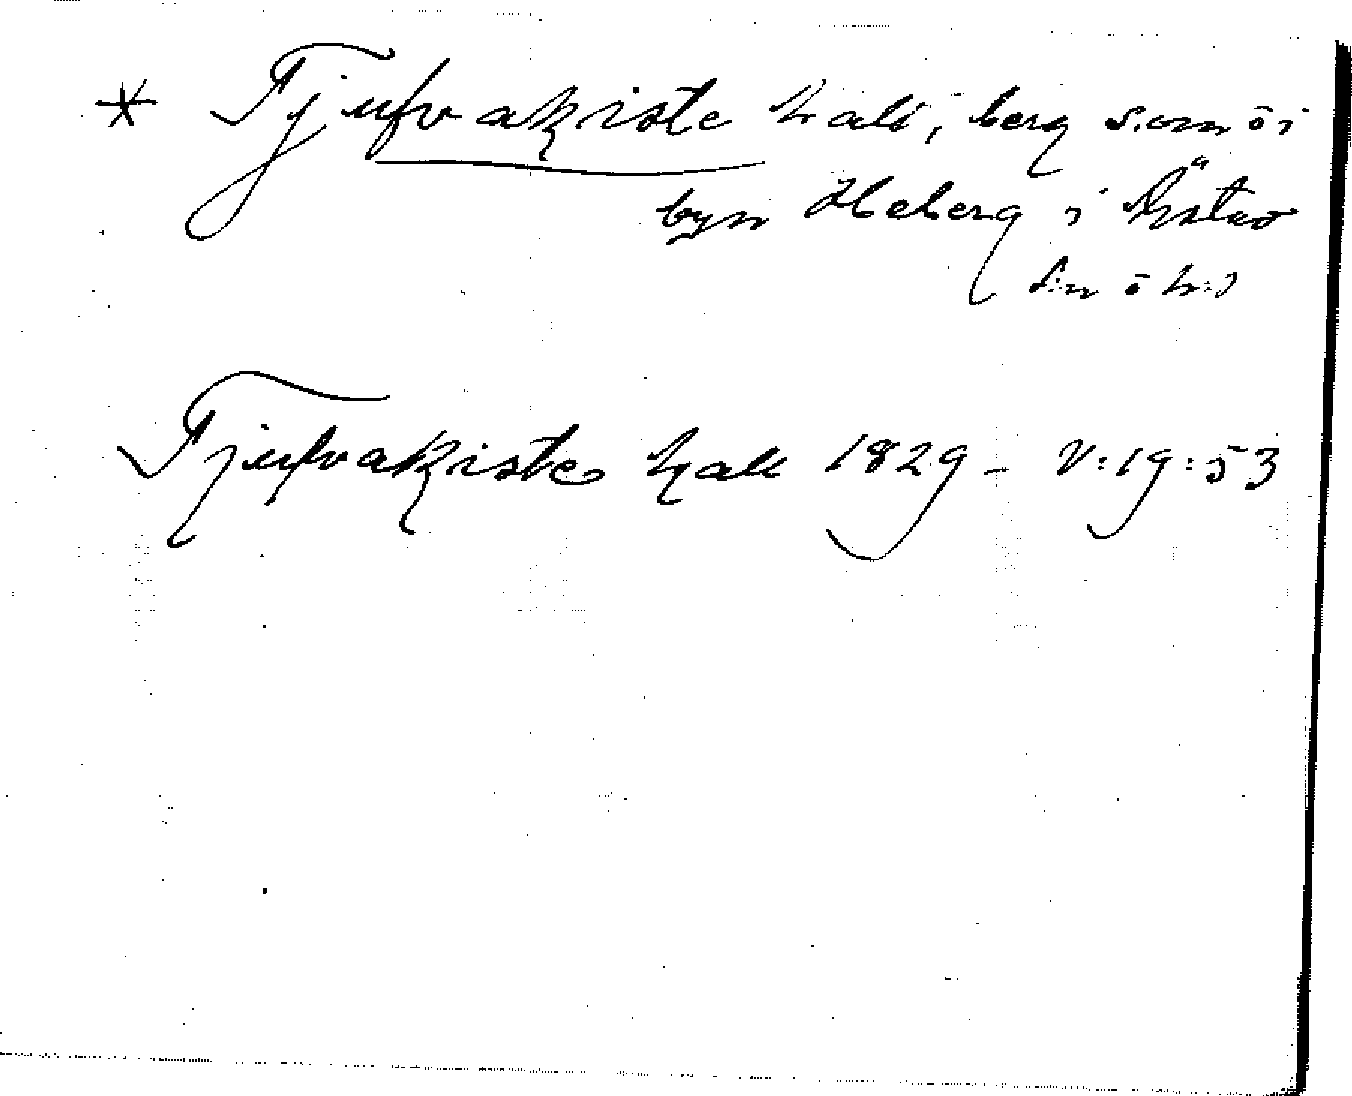 * Tjufvakiste hall, berg s.om ö i
byn Heberg i Årstad
s:n ö h:d
Tjufvakiste hall 1829 - V:19:53